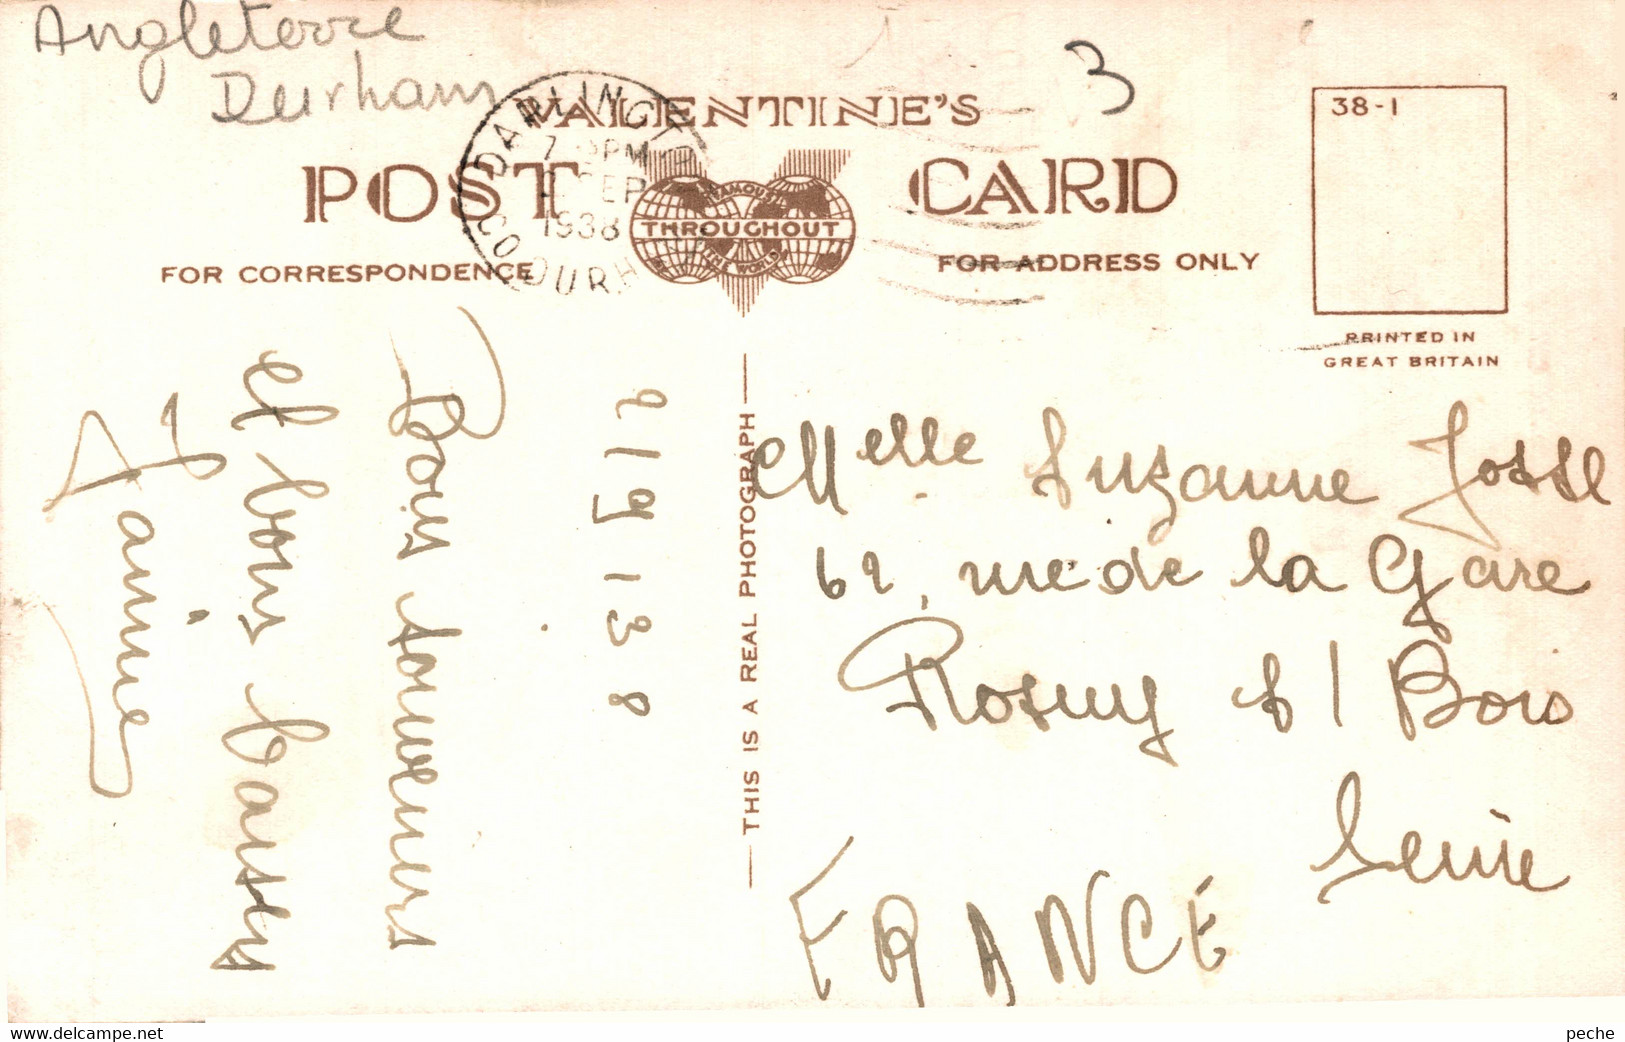 Angleterre
Durham
3
VALENTINE'S
POST CARD
FAMOUS
THROUGHOUT
THE WORLD
DARLINGT
PM
SEP
1938
CO DURH
38-1
FOR CORRESPONDENCE
FOR ADDRESS ONLY
PRINTED IN
GREAT BRITAIN
2/9/38
Bons souvenirs
et bons baisers
Janine
THIS IS A REAL PHOTOGRAPH
Melle Suzanne Josse
62, rue de la Gare
Rosny s/ Bois
Seine
FRANCE
peche